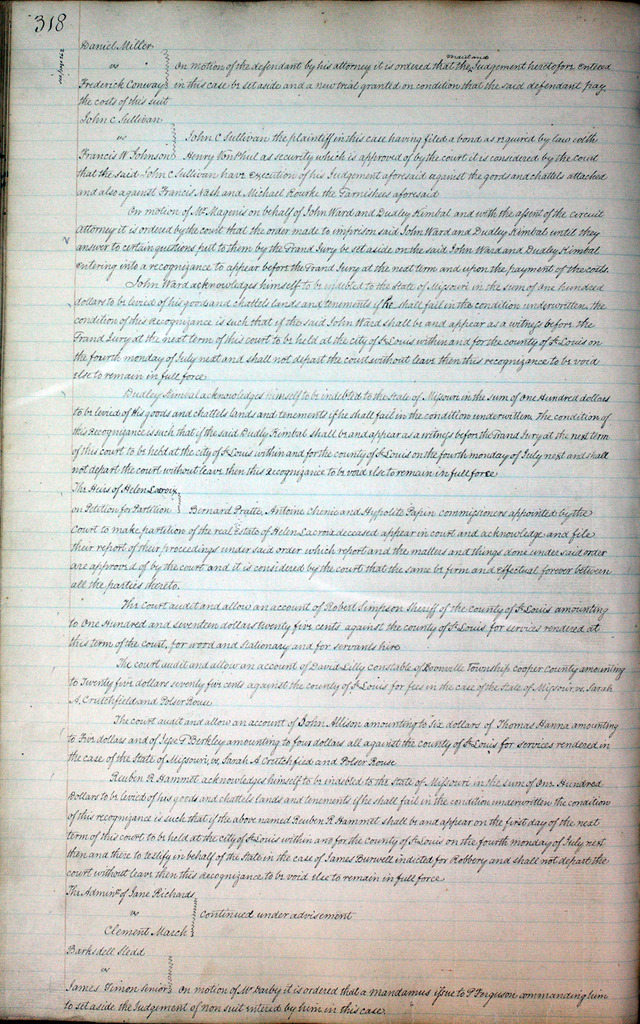 318
Daniel Miller
vs
on motion of the defendant by his attorney it is ordered that the Judgement heretofore entered
Frederick Conway in this case be set aside and a new trial granted on condition that the said defendant pay
the costs of this suit
John C Sullivan
vs
John C Sullivan the plaintiff in this case having filed a bond as required by law with
Francis W Johnson Henry VonPhul as security which is approved of by the court it is considered by the Court
that the said John C Sullivan have execution of his Judgement aforesaid against the goods and chattels attached
and also against Francis Nash and Michael Rourke the Garnishees aforesaid
On motion of Mr Magenis on behalf of John Ward and Dudley Kimbal and with the assent of the circuit
attorney it is ordered by the court that the order made to imprison said John Ward and Dudley Kimbal until they
answer to certain questions put to them by the Grand Jury be set aside on the said John Ward and Dudley Kimbal
entering into a recognizance to appear before the Grand Jury at the next term and upon the payment of the costs.
John Ward acknowledges himself to be indebted to the State of Missouri in the sum of one hundred
dollars to be levied of his goods and chattels lands and tenements if he shall fail in the condition underwritten. the
condition of this recognizance is such that if the said John Ward shall be and appear as a witness before the
Grand Jury at the next term of this court to be held at the city of St Louis within and for the county of St Louis on
the fourth monday of July next and shall not depart the court without leave then this recognizance to be void
else to remain in full force
Dudley Kimbal acknowledges himself to be indebted to the State of Missouri in the sum of One Hundred dollars
to be levied of His goods and chattels lands and tenements if he shall fail in the condition underwritten. The condition of
this Recognizance is such that if the said Dudly Kimbal shall be and appear as a witness before the Grand Jury at the next term
of this court to be held at the city of St Louis within and for the county of St Louis on the fourth monday of July next and shall
not depart the court without leave then this recognizance to be void else to remain in full force
The Heirs of Helen Lacroix
on Petition for Partition Bernard Pratte, Antoine Chenie and Hyppolite Papin commissioners appointed by the
Court to make partition of the real Estate of Helen Lacroix deceased appear in court and acknowledge and file
their report of their proceedings under said order which report and the matters and things done under said order
are approved of by the court and it is considered by the court that the same be firm and effectual forever between
all the parties thereto.
The Court audit and allow an account of Robert Simpson Sheriff of the county of St Louis amounting
to One Hundred and seventeen dollars twenty five cents against the county of St Louis for services rendered at
this term of the court, for wood and stationary and for servants hire
The court audit and allow an account of David Lilly Constable of Boonville Township Cooper county amounting
to Twenty five dollars seventy five cents against the county of St Louis for fees in the case of the State of Missouri vs Sarah
A Crutchfield and Polser Rouse
The court audit and allow an account of John Allison amounting to six dollars of Thomas Hanna amounting
to Five dollars and of Jesse T Berkley amounting to four dollars all against the county of St Louis for services rendered in
the case of the State of Missouri, vs, Sarah A Crutchfied and Polser Rouse
Reuben R Hammet acknowledges himself to be indebted to the State of Missouri in the sum of One Hundred
Dollars to be levied of his goods and chattels lands and tenements if he shall fail in the condition underwritten the condition
of this recognizance is such that if the above named Reuben R Hammet shall be and appear on the first day of the next
term of this court to be held at the city of St Louis within and for the county of St Louis on the fourth monday of July next
then and there to testify in behalf of the State in the case of James Burwell indicted for Robbery and shall not depart the
court without leave then this recognizance to be void else to remain in full force
The Adminr of Jane Richards
vs continued under advisement
Clement March
Barksdell Sledd
vs
James Timon senior on motion of Mr Darby it is ordered that a mandamus issue to P Ferguson commanding him
to set aside the Judgement of non suit entered by him in this case.